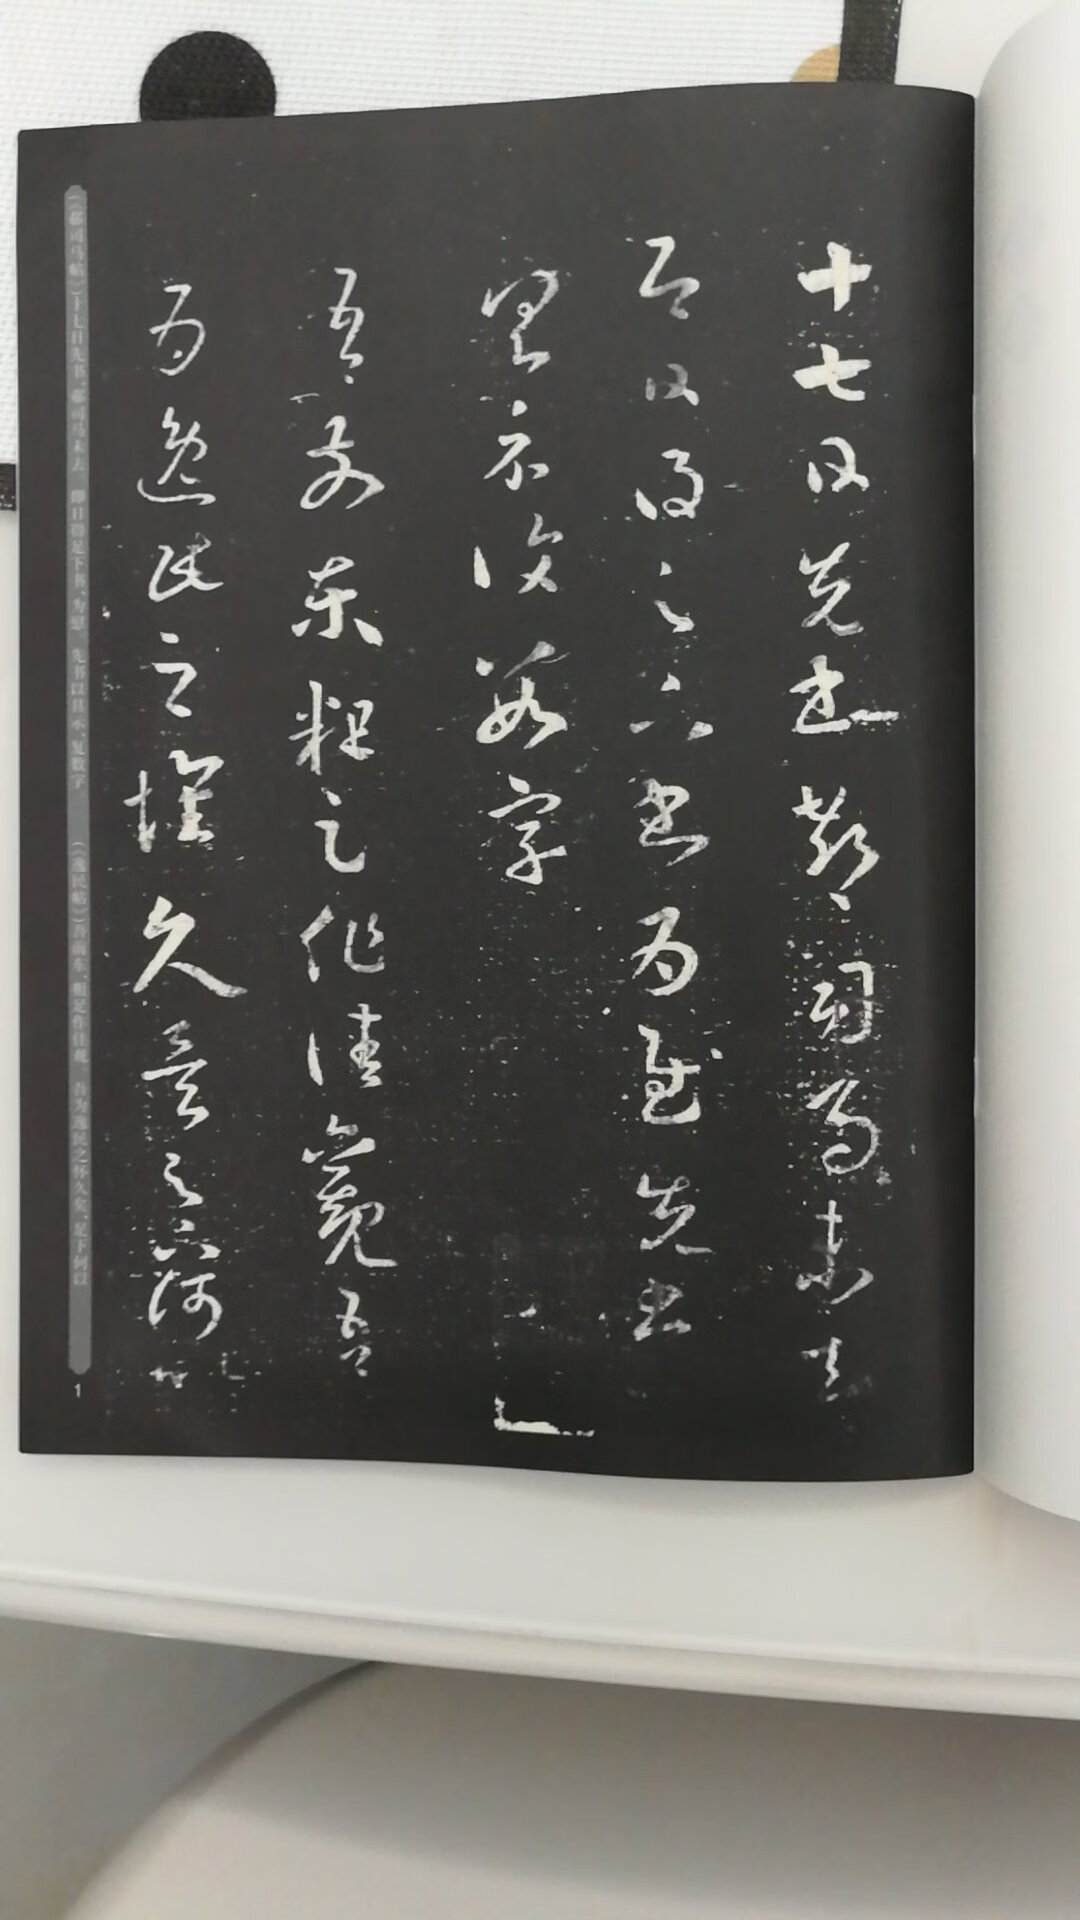 十七日先书郗司马未去
即日得足下书为慰先书
以具示复数字
吾前东粗足作佳观吾
为逸民之怀久矣足下何以
(郗司马帖)十七日先书,郗司马未去。即日得足下书,为慰。先书以具示,复数字。 (逸民帖)吾前东,粗足作佳观。吾为逸民之怀久矣,足下何以
1